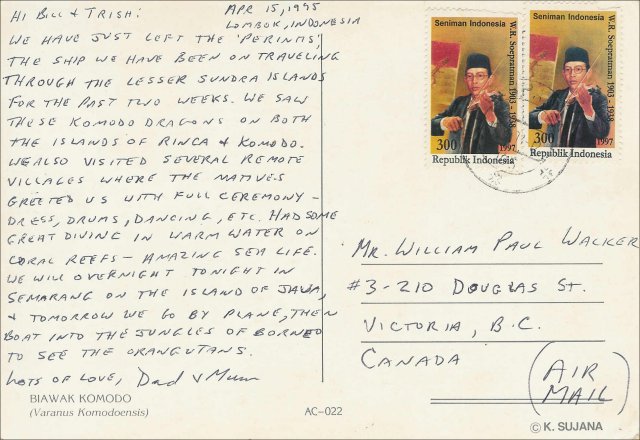 HI BILL & TRISH:
APR 15, 1995
LOMBOK, INDONESIA
WE HAVE JUST LEFT THE 'PERINTIS',
THE SHIP WE HAVE BEEN ON TRAVELING
THROUGH THE LESSER SUNDRA ISLANDS
FOR THE PAST TWO WEEKS. WE SAW
THESE KOMODO DRAGONS ON BOTH
THE ISLANDS OF RINCA & KOMODO.
WE ALSO VISITED SEVERAL REMOTE
VILLAGES WHERE THE NATIVES
GREETED US WITH FULL CEREMONY -
DRESS, DRUMS, DANCING, ETC. HAD SOME
GREAT DIVING IN WARM WATER ON
CORAL REEFS - AMAZING SEA LIFE.
WE WILL OVERNIGHT TONIGHT IN
SEMARANG ON THE ISLAND OF JAVA,
& TOMORROW WE GO BY PLANE, THEN
BOAT INTO THE JUNGLES OF BORNEO
TO SEE THE ORANGUTANS.
LOTS OF LOVE, Dad & Mum
BIAWAK KOMODO
(Varanus Komodoensis)
AC-022
Seniman Indonesia
W.R. Soepratman 1903 - 1938
300
1997
Republik Indonesia
Seniman Indonesia
W.R. Soepratman 1903 - 1938
300
1997
Republik Indonesia
MR. WILLIAM PAUL WALKER
#3-210 DOUGLAS ST.
VICTORIA, B.C.
CANADA
(AIR
MAIL)
© K. SUJANA